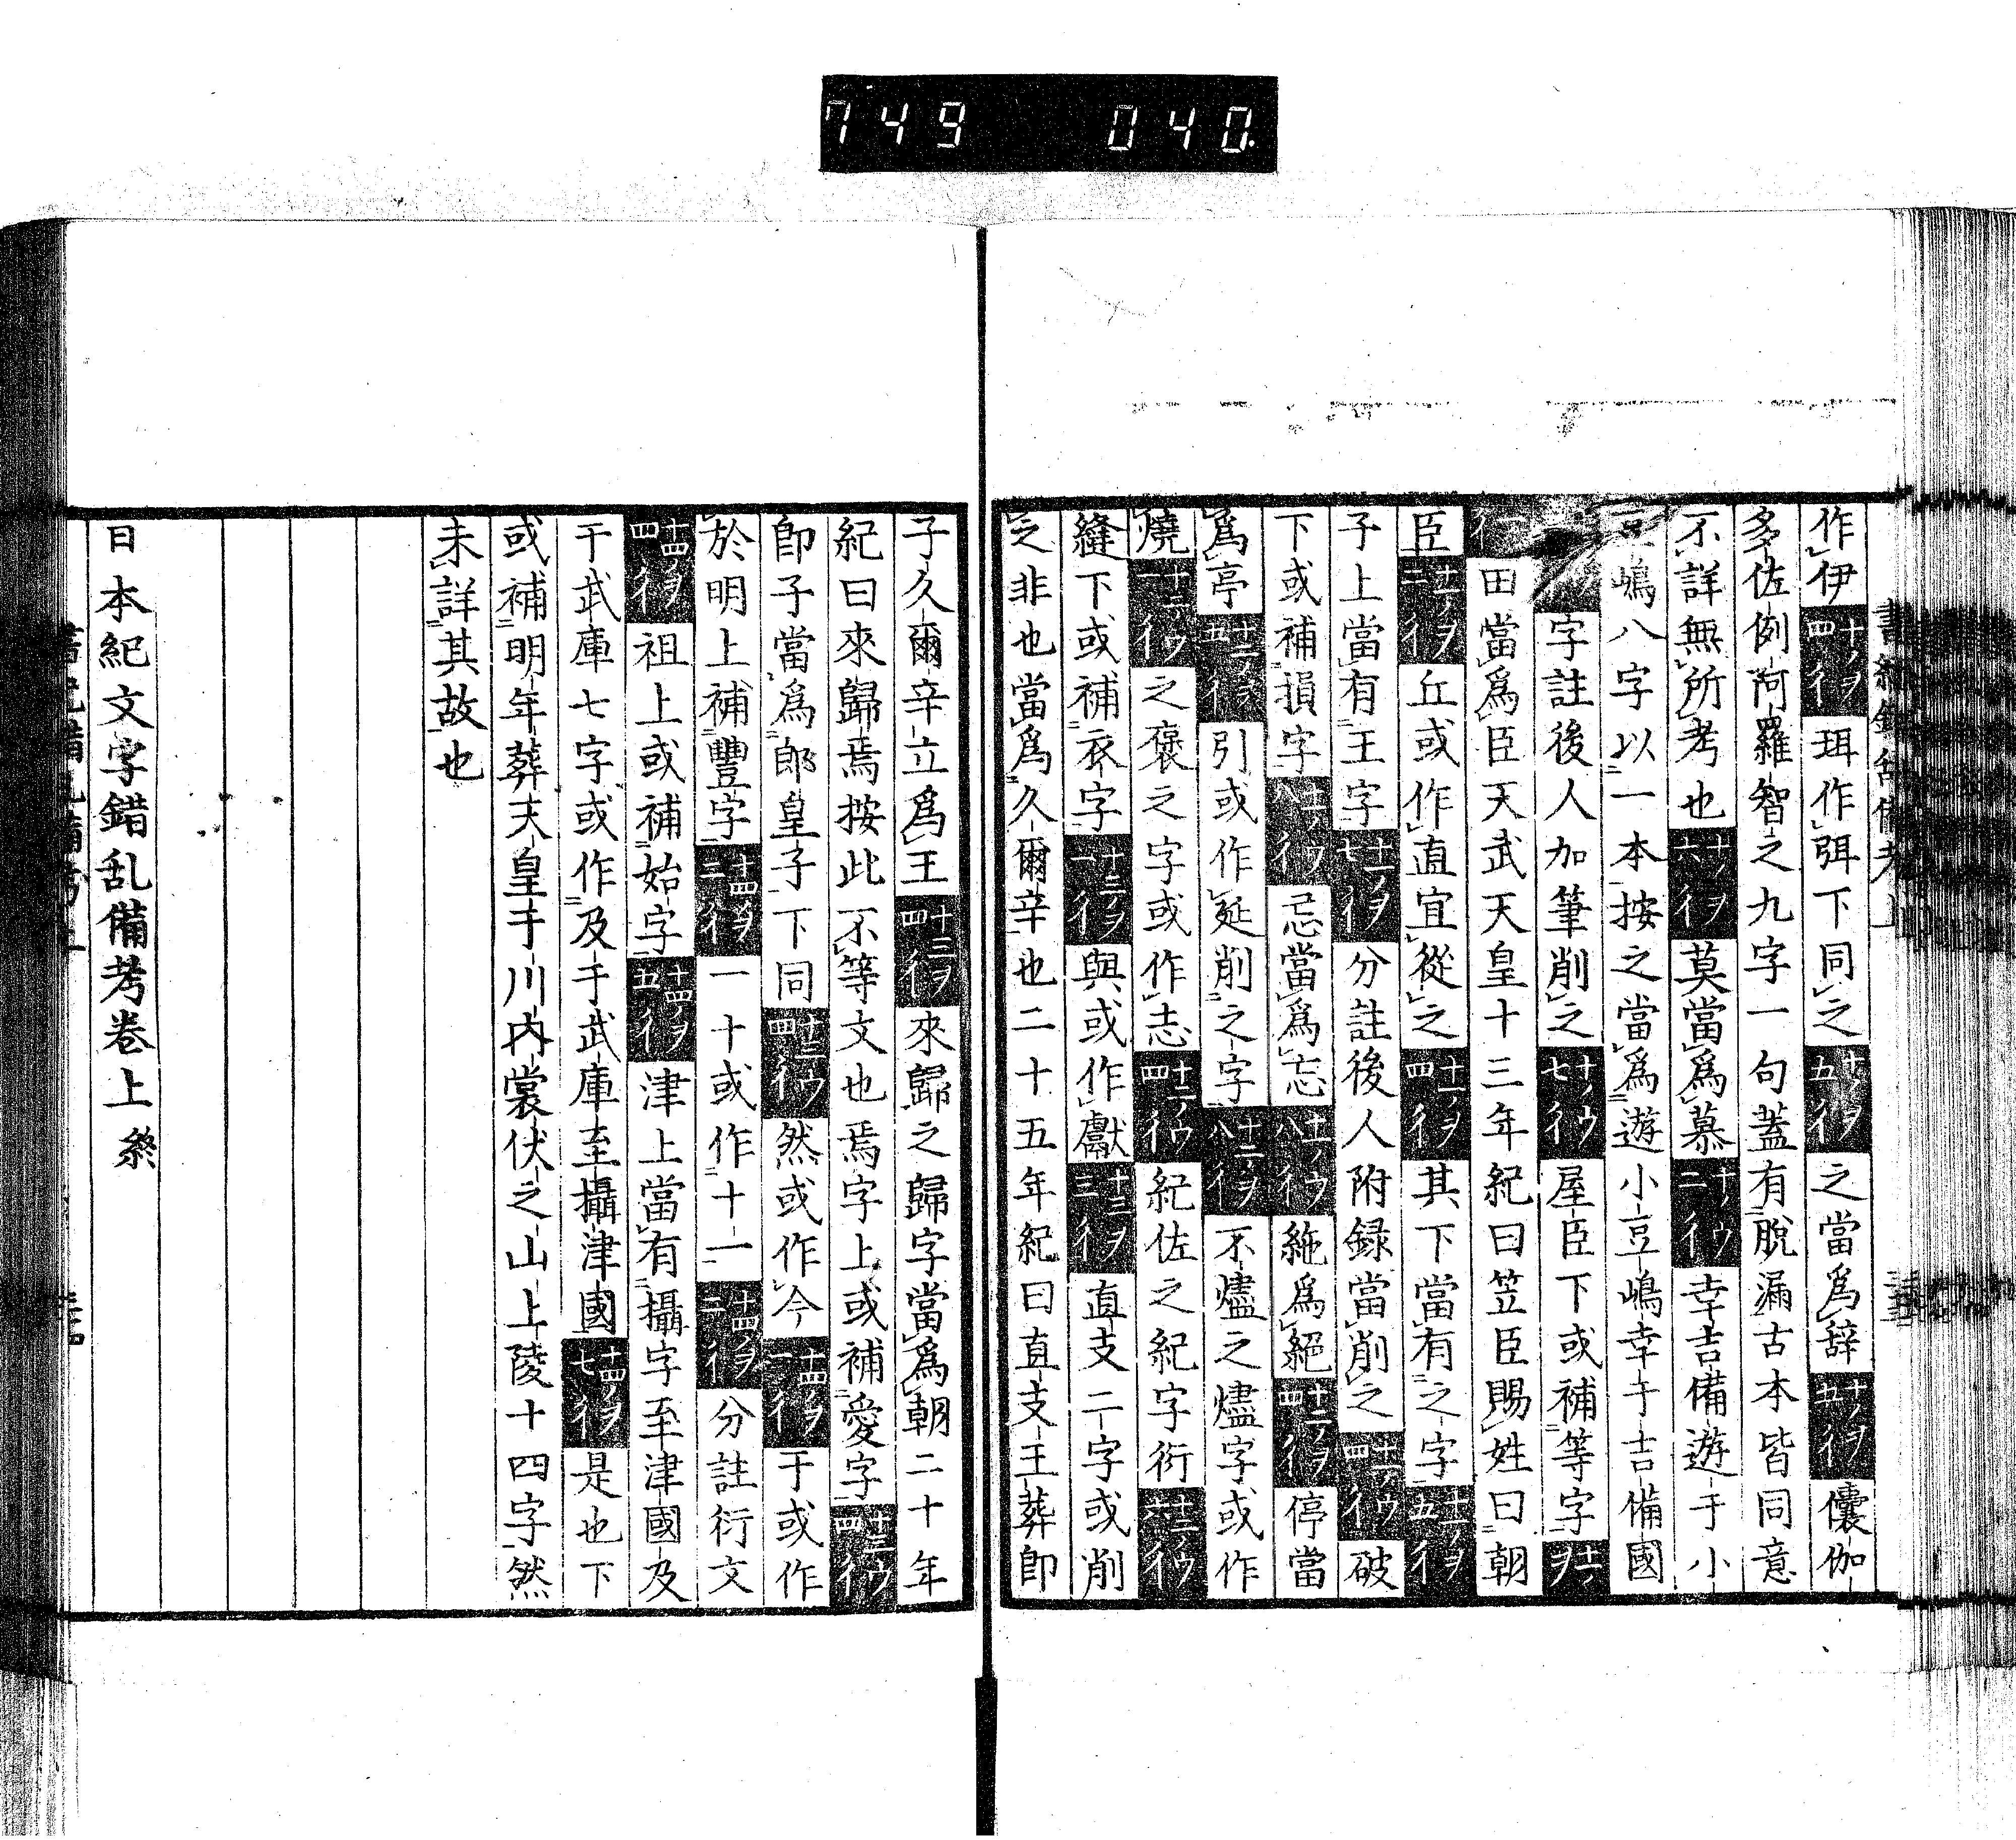 749 040.
作伊十ノヲ四行珥作弭下同之十ノヲ五行之當爲辞十ノヲ五行儾伽
多佐例阿羅智之九字一句蓋有脫漏古本皆同意
不詳無所考也十ノヲ六行莫當爲慕十ノウ二行幸吉備遊于小
嶋八字以一本按之當爲遊小豆嶋幸于吉備國
字註後人加筆削之十ノウ七行屋臣下或補等字十一ノヲ
田當爲臣天武天皇十三年紀曰笠臣賜姓曰朝
臣十一ノヲ二行丘或作直宜從之十一ノヲ四行其下當有之字十一ノヲ五行
子上當有王字十一ノヲ七行分註後人附録當削之十一ノウ四行破
下或補損字十一ノウ八行忌當爲忘十一ノウ八行絁爲絕十二ノヲ四行停當
爲亭十二ノヲ五行引或作延削之字十二ノヲ八行不燼之燼字或作
燒十二ノウ一行之褒之字或作志十二ノウ四行紀佐之紀字衍十二ノウ六行
縫下或補衣字十三ノヲ一行與或作獻十三ノヲ三行直支二字或削
之非也當爲久爾辛也二十五年紀曰直支王葬卽
子久爾辛立爲王十三ヲ四行來歸之歸字當爲朝二十年
紀曰來歸焉按此不等文也焉字上或補愛字十三ウ四行
卽子當爲郎皇子下同十三ウ四行然或作今十四ノヲ一行于或作
於明上補豐字十四ノヲ二行一十或作十一十四ノヲ二行分註衍文
十四ノヲ四行祖上或補始字十四ノヲ五行津上當有攝字至津國及
于武庫七字或作及于武庫至攝津國十四ノヲ七行是也下
或補明年葬天皇于川内裳伏之山上陵十四字然
未詳其故也
日本紀文字錯乱備考卷上終